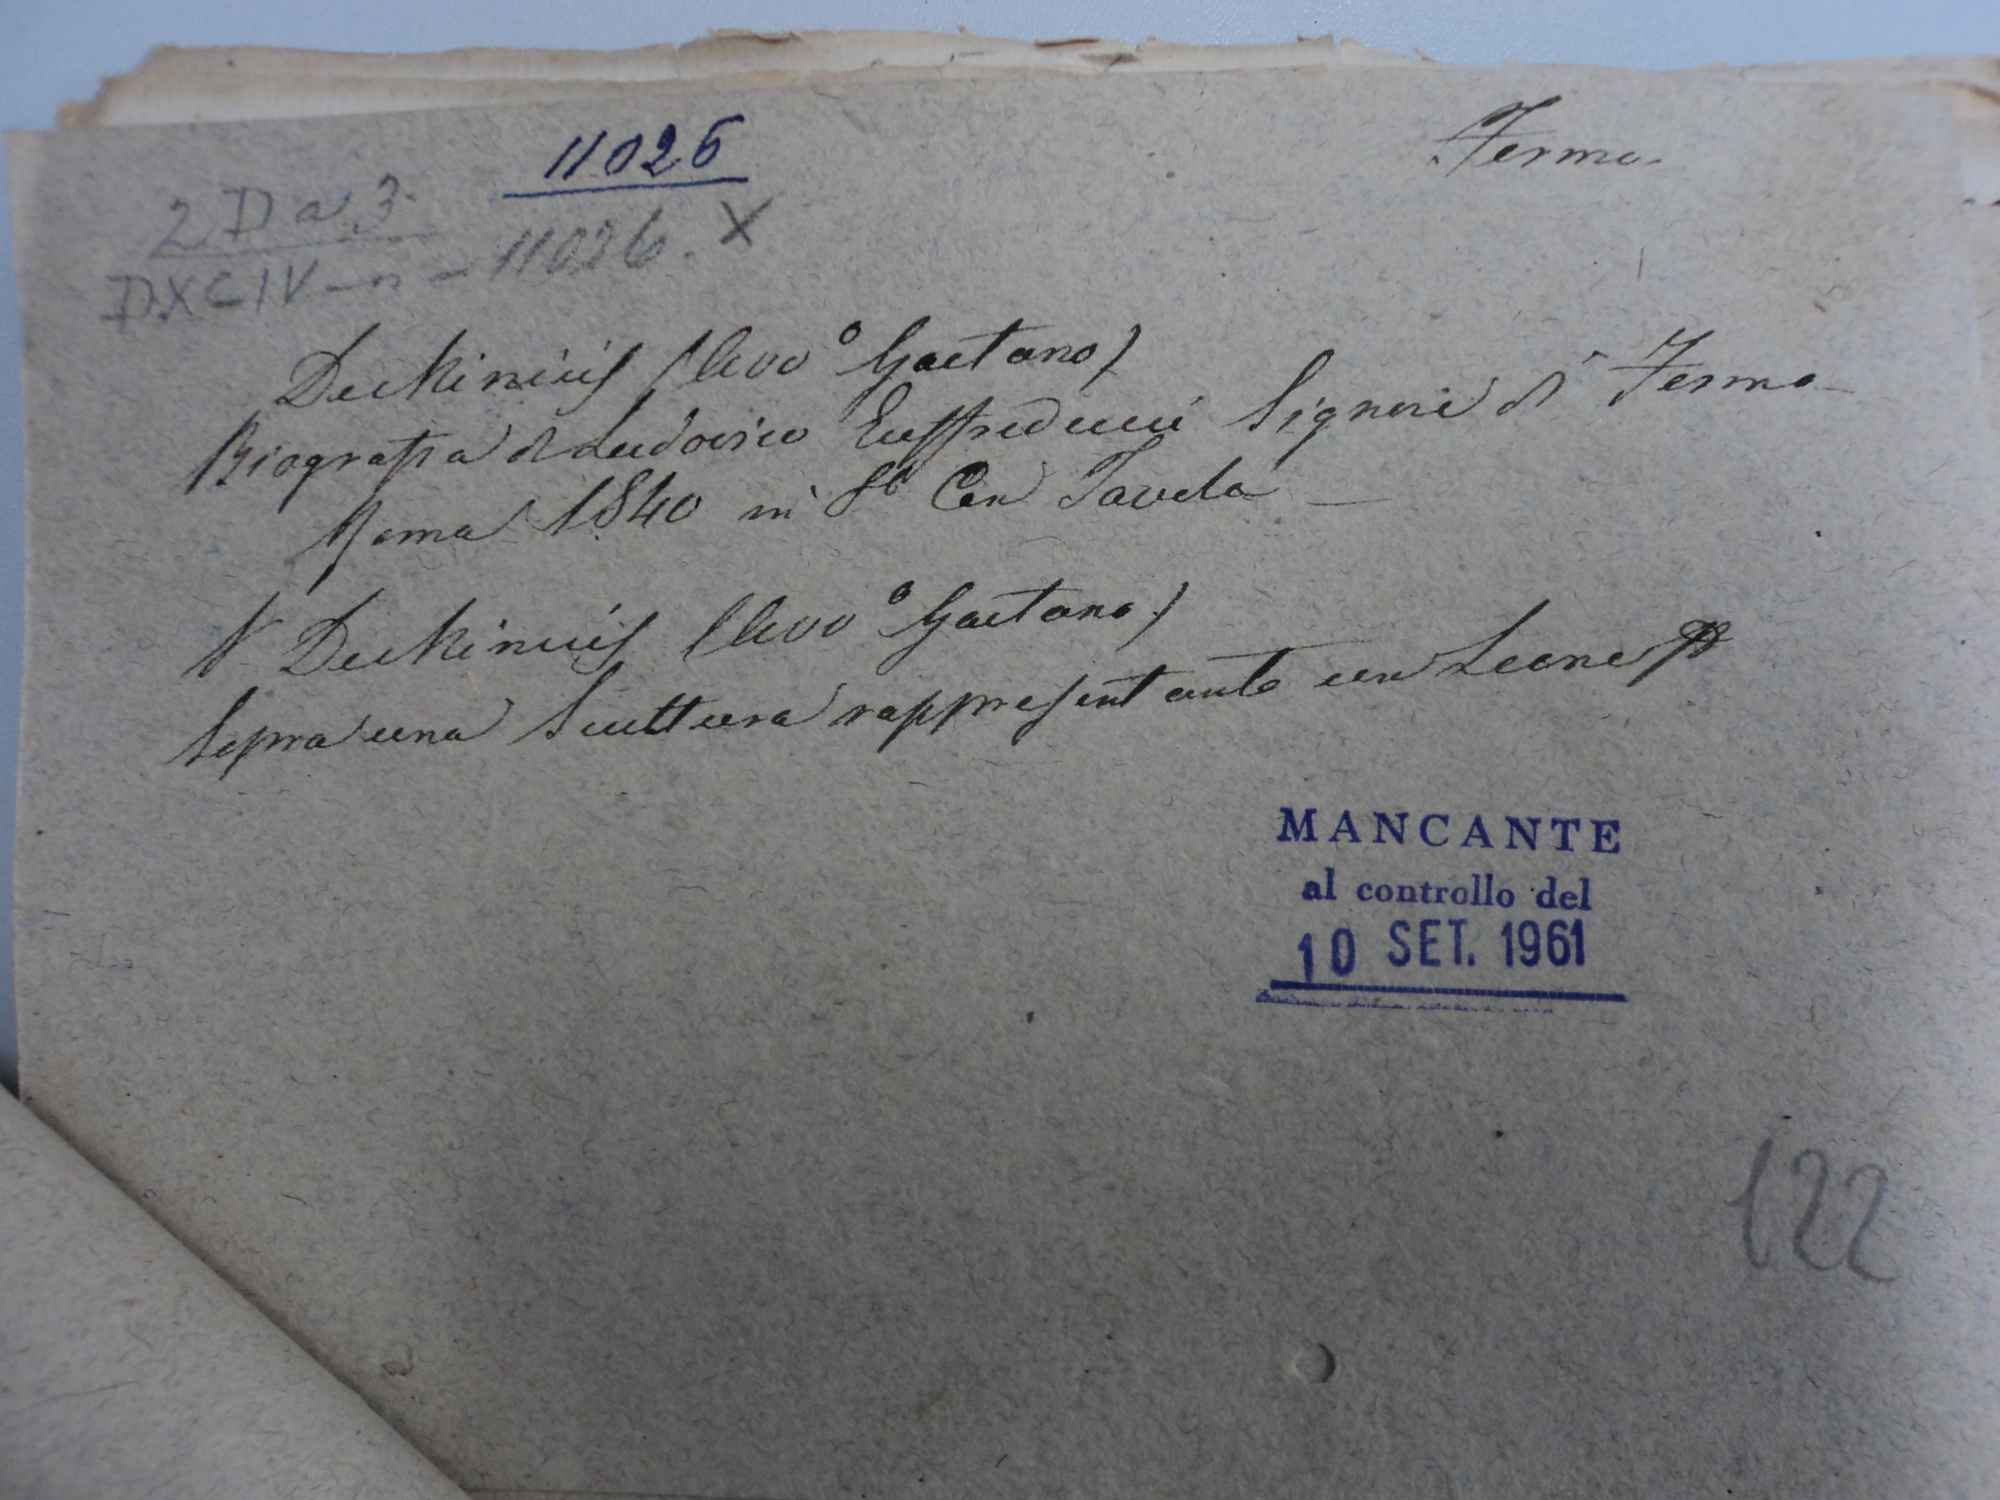 11026
Fermo.
2 D a 3.
DXCIV - n - 11026. X
DeMinicis (Avvo Gaetano)
Biografia di Ludovico Euffreducci Signore di Fermo
Roma 1840 in 8º Con Tavola
N DeMinicis (Avvo Gaetano)
Sopra una Scultura rappresentante un Leone
MANCANTE
al controllo del
10 SET. 1961
122